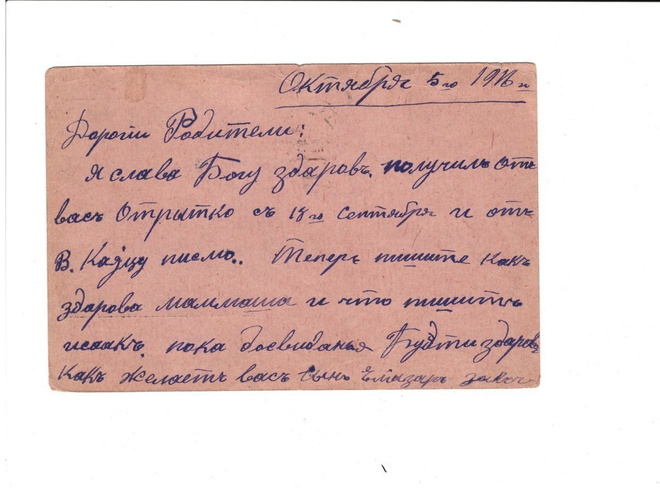 Октября 5го 1916 г
Дорогіи Родители!
я слава Богу здаровъ. получилъ отъ
васъ Отрытко съ 18го Сентября и отъ
В. писмо.. Теперь пишите какъ
здарова мамаша и что пишитъ
исаакъ. пока досвиданья Будти здаровы
какъ желаетъ васъ сынъ